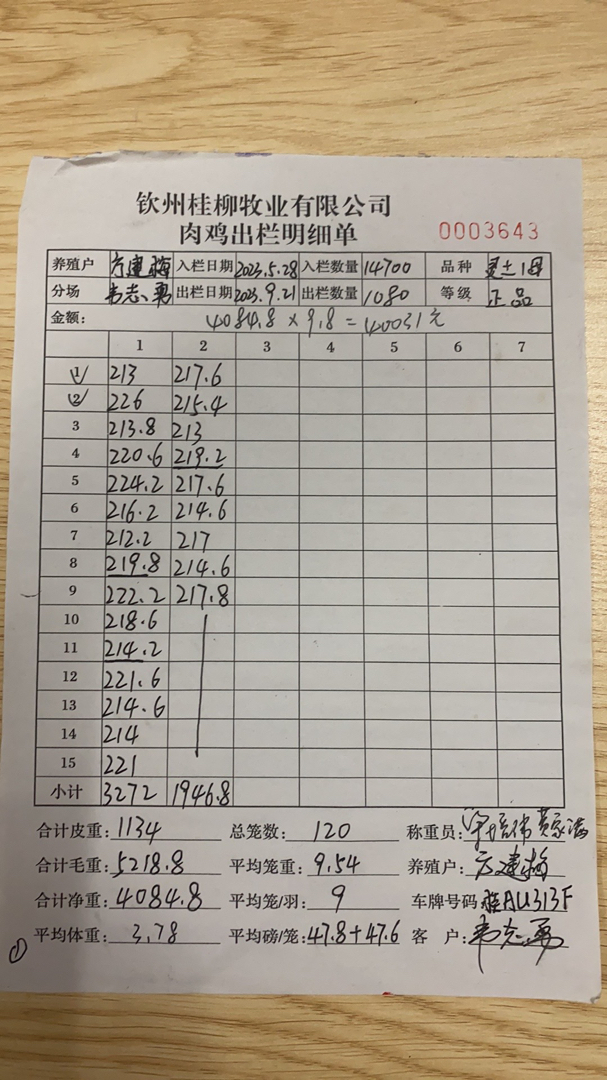 钦州桂柳牧业有限公司
肉鸡出栏明细单 0003643
养殖户 方建梅 入栏日期 2023.5.28 入栏数量 14700 品种 灵土1号
分场 韦志勇 出栏日期 2023.9.21 出栏数量 1080 等级 正品
金额: 4084.8 × 9.8 = 40031元
1 2 3 4 5 6 7
1 213 217.6
2 226 215.4
3 213.8 213
4 220.6 219.2
5 224.2 217.6
6 216.2 214.6
7 212.2 217
8 219.8 214.6
9 222.2 217.8
10 218.6
11 214.2
12 221.6
13 214.6
14 214
15 221
小计 3272 1946.8
合计皮重: 1134 总笼数: 120 称重员:
合计毛重: 5218.8 平均笼重: 9.54 养殖户: 方建梅
合计净重: 4084.8 平均笼/羽: 9 车牌号码: 桂AU313F
平均体重: 3.78 平均磅/笼: 47.8+47.6 客户: 韦志勇
①